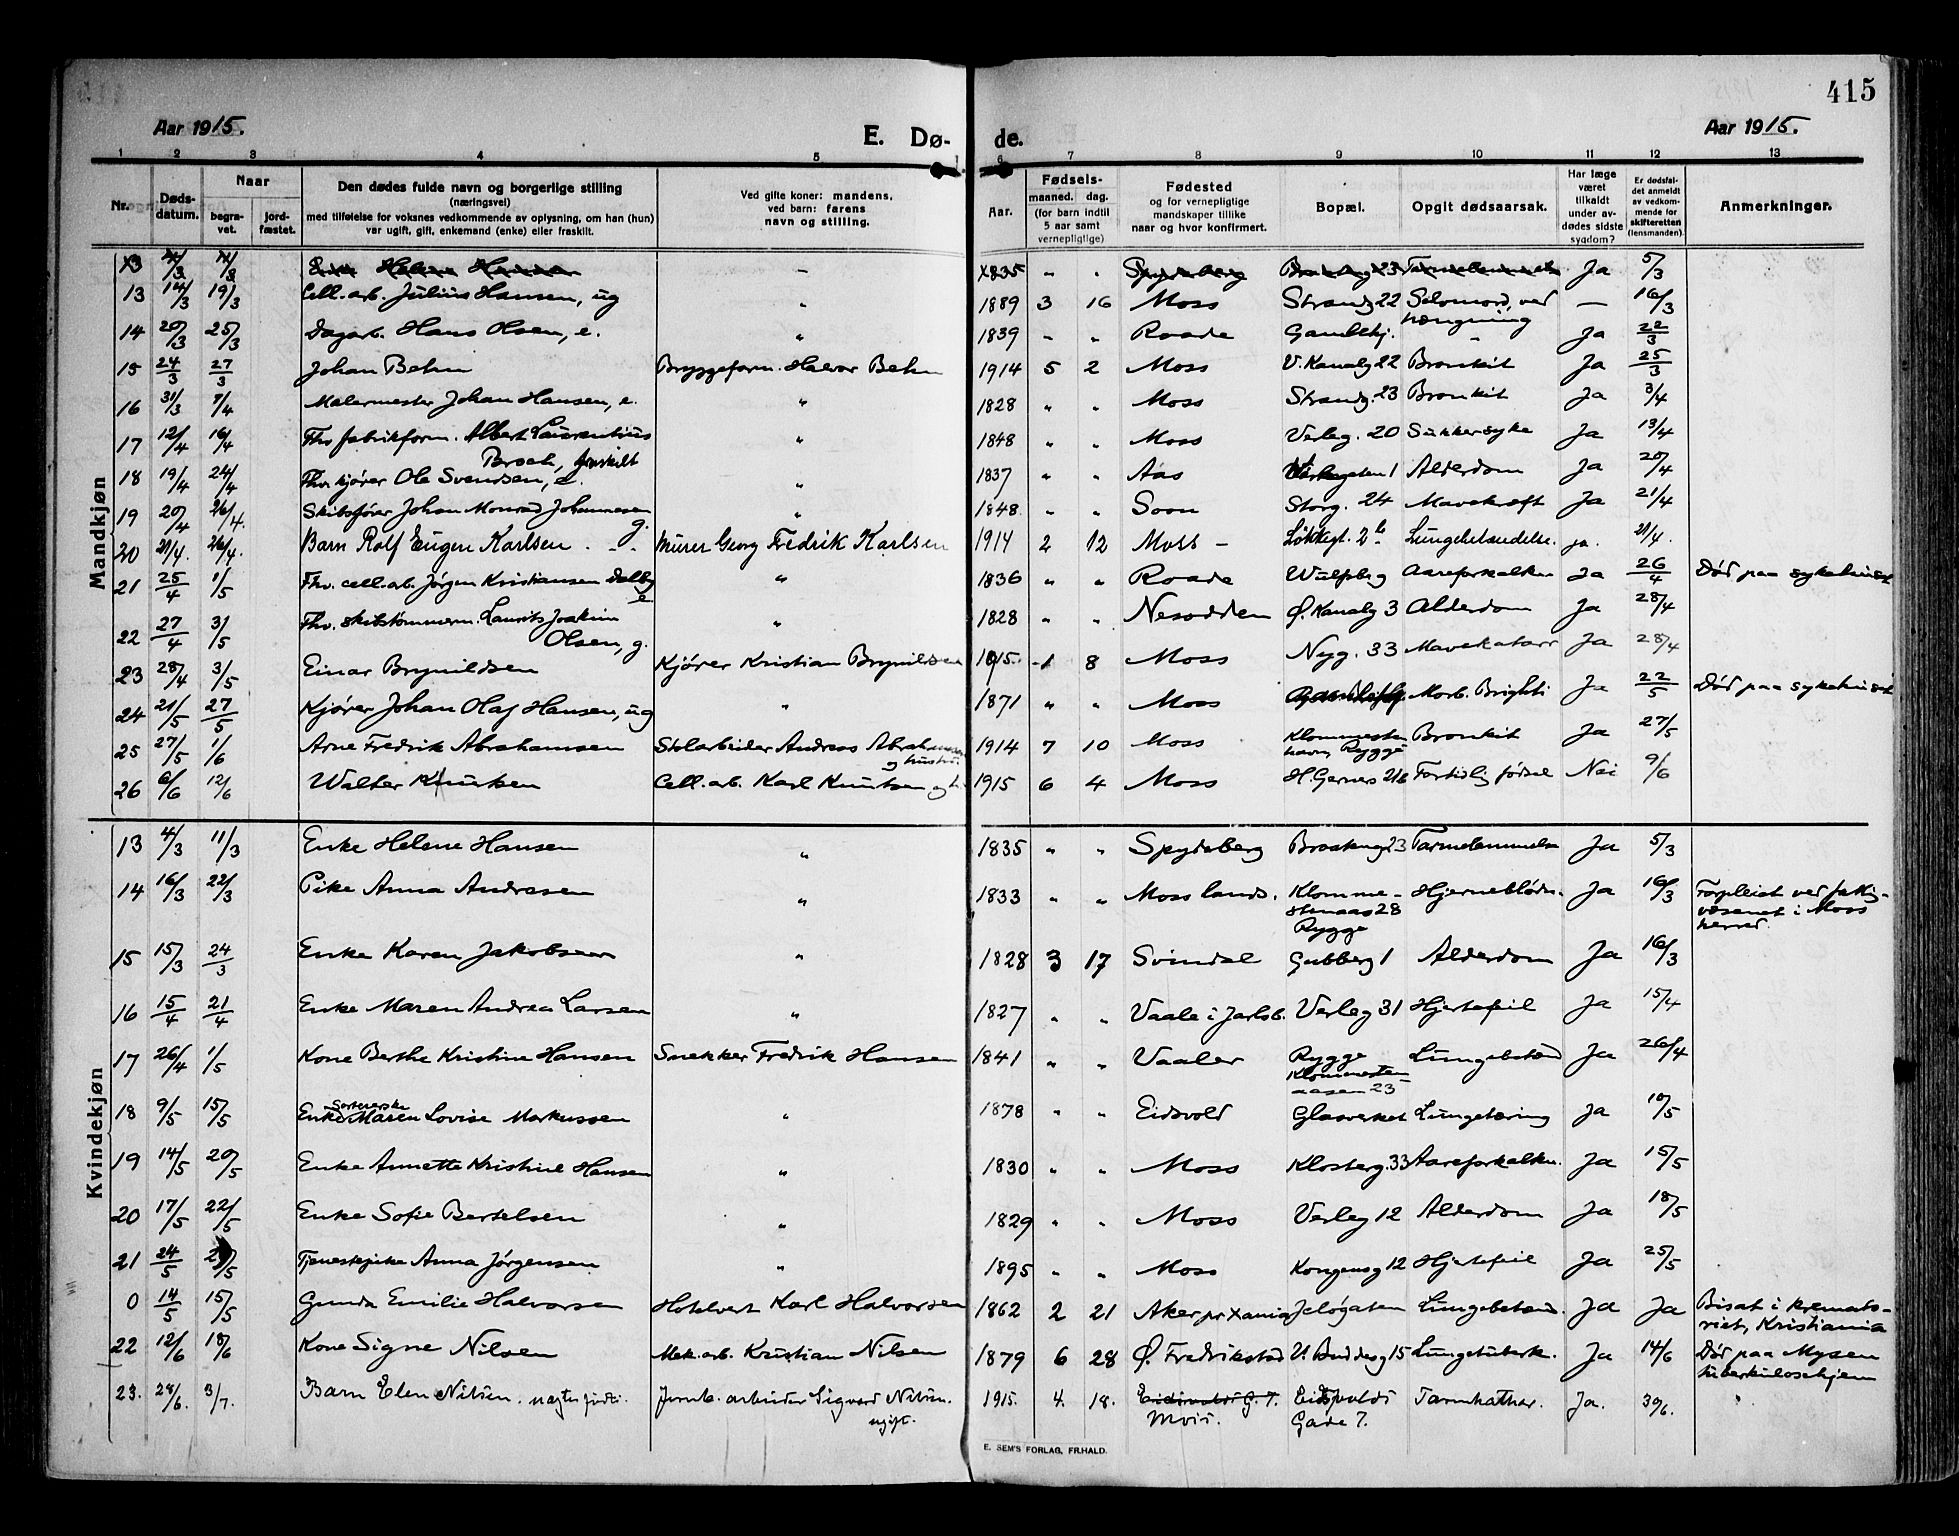 415
Aar 1915.
E. Dø-
de.
Aar 1915.
1 2 3 4 5 6 7 8 9 10 11 12 13
Nr.
Døds-
datum.
Naar
begra-
vet.
jord-
fæstet.
Den dødes fulde navn og borgerlige stilling
(næringsvei)
med tilføielse for voksnes vedkommende av oplysning, om han (hun)
var ugift, gift, enkemand (enke) eller fraskilt.
Ved gifte koner: mandens,
ved barn: farens
navn og stilling.
Aar.
Fødsels-
maaned. dag.
(for barn indtil
5 aar samt
vernepligtige)
Fødested
og for vernepligtige
mandskaper tillike
naar og hvor konfirmert.
Bopæl.
Opgit dødsaarsak.
Har læge
været
tilkaldt
under av-
dødes sidste
sygdom?
Er dødsfal-
det anmeldt
av vedkom-
mende for
skifteretten
(lensmanden).
Anmerkninger.
Mandkjøn
13 4/3 11/3 Enke Helene Hansen – 1835 " " Spydeberg 23 Ja 5/3
13 14/3 19/3 Cell. arb. Julius Hansen, ug " 1889 3 16 Moss Strandg 22 Selvmord, ved hængning — 16/3
14 20/3 25/3 Dagarb. Hans Olsen, e. " 1839 " " Raade Gamlekj. " Ja 22/3
15 24/3 27/3 Johan Behn Bryggeform. Halvor Behn 1914 5 2 Moss V. Kanalg 22 Bronkit Ja 25/3
16 31/3 7/4 Malermester Johan Hansen, e. " 1828 " " Moss Strandg. 23 Bronkit Ja 3/4
17 12/4 16/4 Fhv fabrikform. Albert Laurentius
Broch, fraskilt " 1848 " " Moss Verleg. 20 Sukkersyke Ja 13/4
18 19/4 24/4 Fhv. kjører Ole Svendsen, e. " 1837 " " Aas 1 Alderdom Ja 20/4
19 20/4 26/4. Skibsfører Johan Monrad Johannesen
g. " 1848 " " Soon Storg. 24 Mavekræft Ja 21/4
20 21/4. 26/4. Barn Rolf Eugen Karlsen - - Murer Georg Fredrik Karlsen 1914 2 12 Moss – Løkkegt. 2b Lungebetændelse. ja. 21/4.
21 25/4 1/5 Fhv. cell. arb. Jørgen Kristiansen Dalby
e " 1836 " " Raade Wulfsbg Aareforkalkn Ja 26/4 Død paa sykehuset
22 27/4 3/5 Fhv. skibstømmerm. Laurits Joakim
Olsen, g. " 1828 " " Nesodden Ø. Kanalg 3 Alderdom Ja 28/4
23 28/4 3/5 Einar Brynildsen Kjører Kristian Brynildsen 1915. 1 8 Moss Nyg. 33 Mavekatarr Ja 28/4
24 21/5 27/5 Kjører Johan Olaf Hansen, ug " 1871 " " Moss Morb. Brighti Ja 22/5 Død paa sykehuset
25 27/5 1/6 Arne Fredrik Abrahamsen Stolarbeider Andreas Abrahamsen
og hustru. 1914 7 10 Moss Klommesten
havn, Rygge Bronkit Ja 27/5
26 6/6 12/6 Walter Knutsen Cell. arb. Karl Knutsen og h. 1915 6 4 Moss H. Gernes 21b Fortidlig fødsel Nei 9/6
Kvindekjøn
13 4/3 11/3 Enke Helene Hansen " 1835 " " Spydeberg 23 Ja 5/3
14 16/3 22/3 Pike Anna Andresen " 1833 " " Moss lands. Klomme-
stenaas 28
Rygge Hjerneblødn. Ja 16/3 Forpleiet ved fattig-
væsenet i Moss
herred.
15 15/3 24/3 Enke Karen Jakobsen " 1828 3 17 Svindal Gubberg 1 Alderdom Ja 16/3
16 15/4 21/4 Enke Maren Andrea Larsen " 1827 " " Vaale i Jarlsb. Verleg 31 Hjertefeil Ja 15/4
17 26/4 1/5 Kone Berthe Kristine Hansen Snekker Fredrik Hansen 1841 " " Vaaler Rygge
Klommesten
aasen 23 Lungebetænd Ja 26/4
18 9/5 15/5 Enke Sorterske Maren Lovise Markussen " 1878 " " Eidsvold Glasverket Lungetæring Ja 10/5
19 14/5 20/5 Enke Annette Kristine Hansen " 1830 " " Moss Klosterg. 33 Aareforkalkn. Ja 15/5
20 17/5 22/5 Enke Sofie Bertelsen " 1829 " " Moss Verleg 12 Alderdom Ja 18/5
21 24/5 Tjenestepike Anna Jørgensen " 1895 " " Moss Kongensg 12 Hjertefeil Ja 25/5
0 14/5 15/5 Gunda Emilie Halvorsen Hotelvert Karl Halvorsen 1862 2 21 Aker pr Xania Jeløgaten Lungebetæn. Ja Ja Bisat i kremato-
riet, Kristiania
22 12/6 18/6 Kone Signe Nilsen Mek. arb. Kristian Nilsen 1879 6 28 Ø. Fredrikstad V. Buddesg 15 Lungetuberk. Ja 14/6 Død paa Mysen
tuberkulosehjem
23. 28/6. 3/7. Barn Elen Nilsen. uegte født. Jernb. arbeider Sigvard Nilsen.
ugift. 1915. 4. 18. Eidsvolds G. 7.
Moss. Eidsvolds
Gade 7. Tarmkathar. Ja. 30/6. "
E. SEM'S FORLAG, FR.HALD.